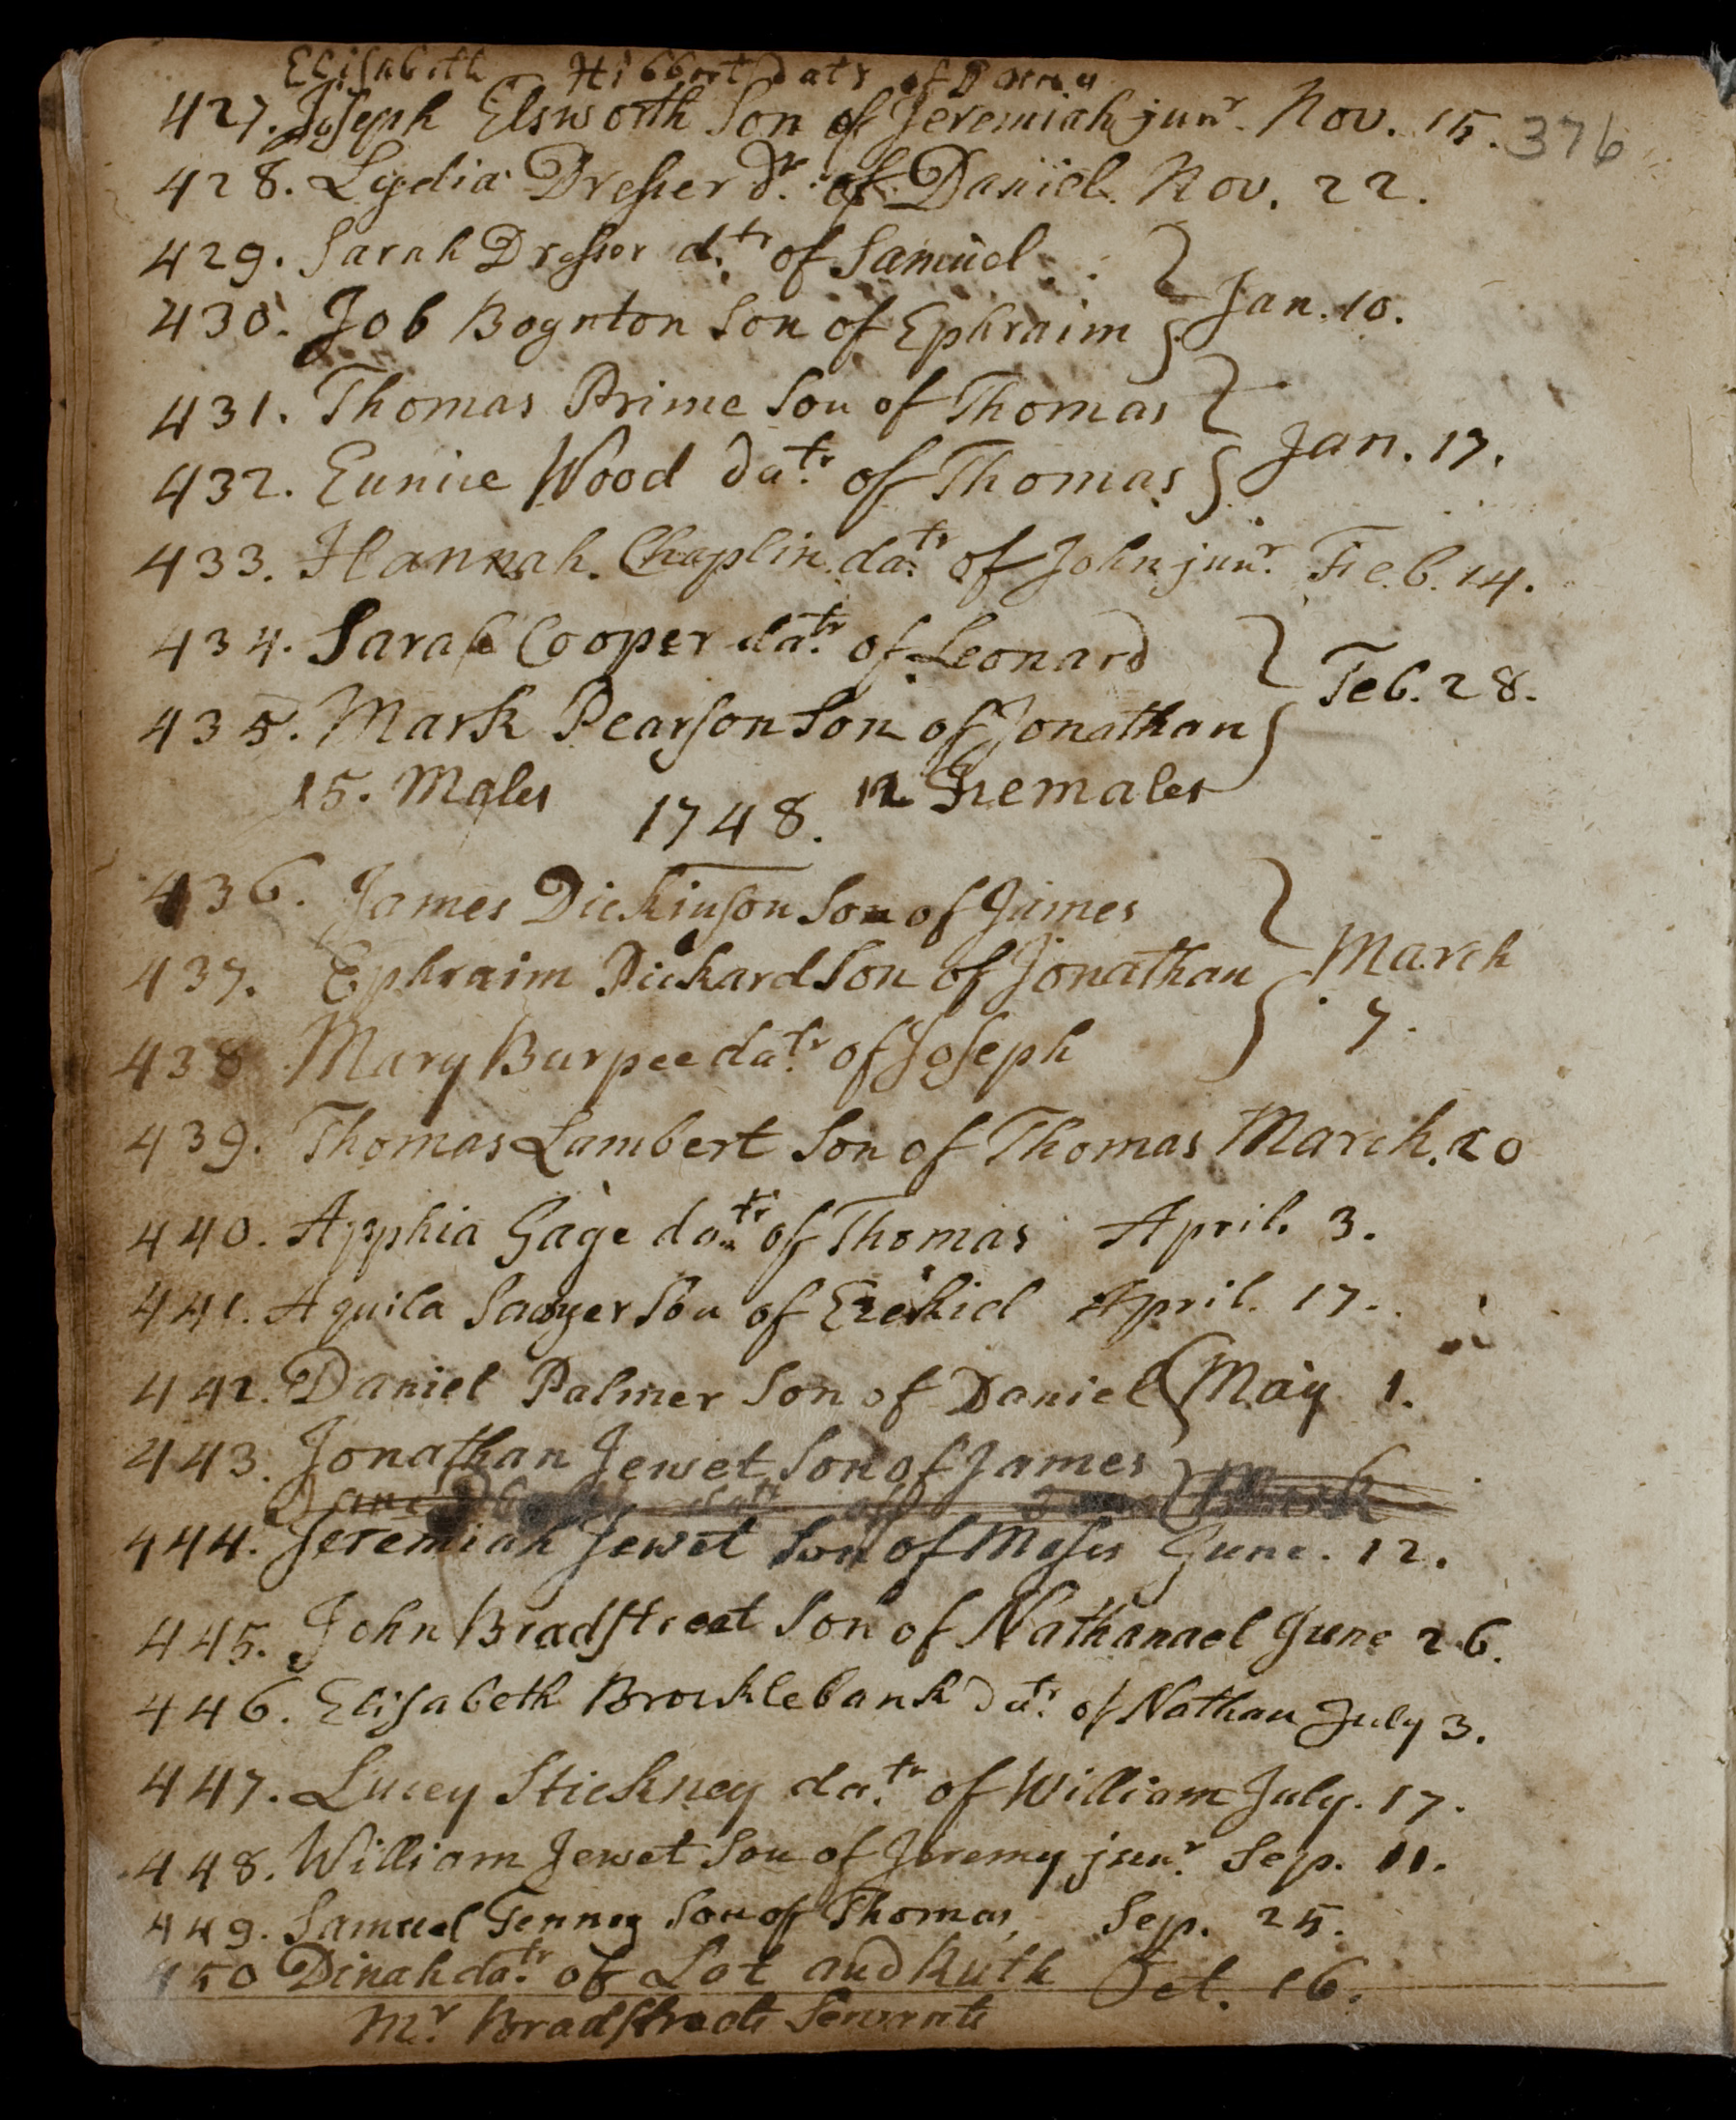 Elisabeth Hibbert datr of
427. Joseph Elsworth Son of Jeremiah junr. Nov. 15. 376
428. Lydia Dresser dr. of Daniel. Nov. 22.
429. Sarah Dresser d.tr of Samuel
430. Job Boynton Son of Ephraim } Jan. 10.
431. Thomas Prime Son of Thomas
432. Eunice Wood Datr. of Thomas } Jan. 17.
433. Hannah Chaplin datr. of John junr. Feb. 14.
434. Sarah Cooper datr. of Leonard
435. Mark Pearson Son of Jonathan } Feb. 28.
15. Males 12 Females
1748.
436. James Dickinson Son of James
437. Ephraim Pickard Son of Jonathan } March
7.
438 Mary Burpee datr. of Joseph
439. Thomas Lambert Son of Thomas March. 20
440. Apphia Gage datr. of Thomas April. 3.
441. Aquila Sawyer Son of Ezekiel April. 17.
442. Daniel Palmer Son of Daniel { May 1.
443. Jonathan Jewet Son of James
444. Jeremiah Jewet Son of Moses June. 12.
445. John Bradstreet Son of Nathanael June 26.
446. Elisabeth Brocklebank Datr. of Nathan July 3.
447. Lucey Stickney datr. of William July. 17.
448. William Jewet Son of Jeremy junr. Sep. 11.
449. Samuel Tenney Son of Thomas, Sep. 25.
450 Dinah datr. of Lot and Ruth Oct. 16.
Mr. Bradstreets Servants